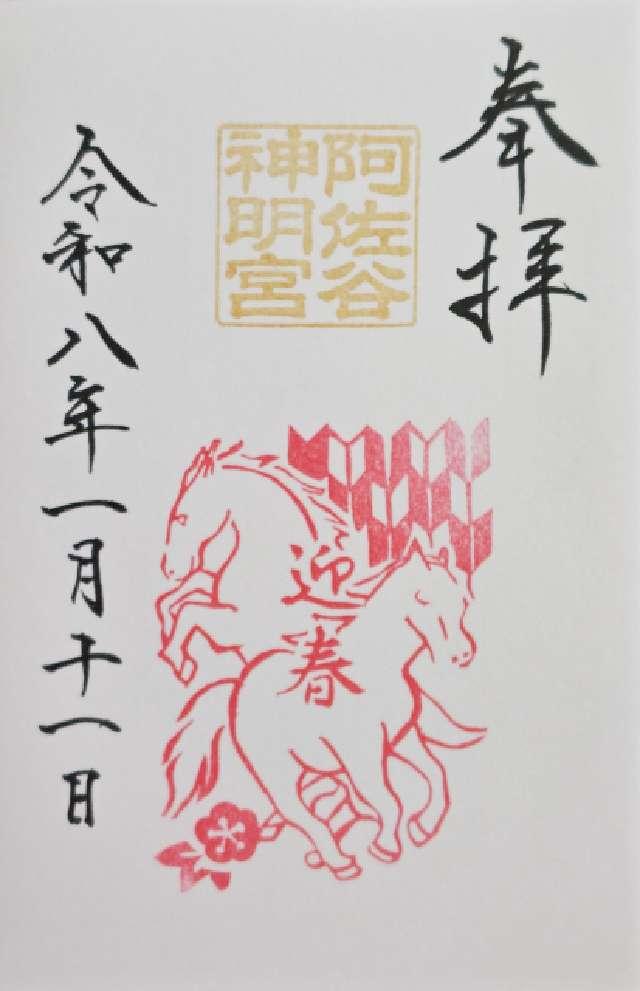 奉拝
阿佐谷
神明宮
迎春
令和八年一月十一日